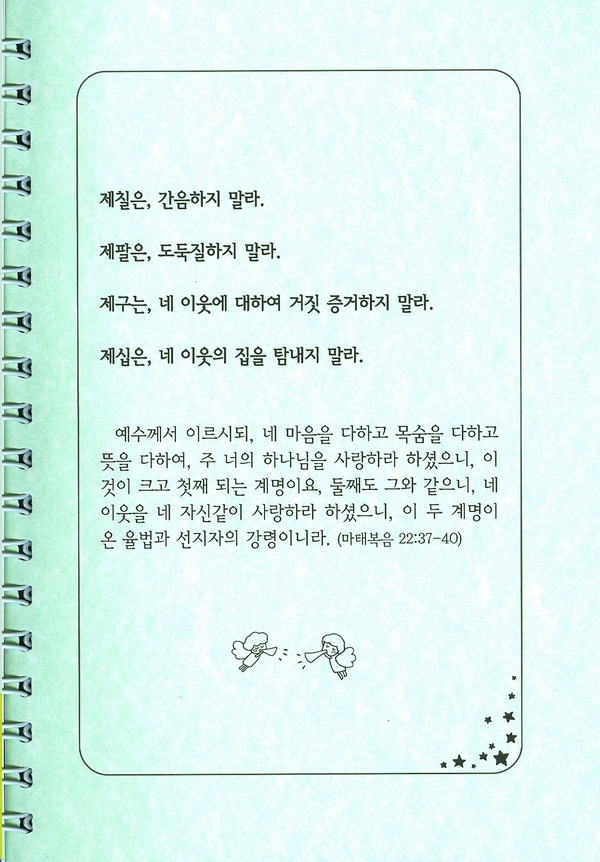 제칠은, 간음하지 말라.
제팔은, 도둑질하지 말라.
제구는, 네 이웃에 대하여 거짓 증거하지 말라.
제십은, 네 이웃의 집을 탐내지 말라.
예수께서 이르시되, 네 마음을 다하고 목숨을 다하고
뜻을 다하여, 주 너의 하나님을 사랑하라 하셨으니, 이
것이 크고 첫째 되는 계명이요, 둘째도 그와 같으니, 네
이웃을 네 자신같이 사랑하라 하셨으니, 이 두 계명이
온 율법과 선지자의 강령이니라. (마태복음 22:37-40)